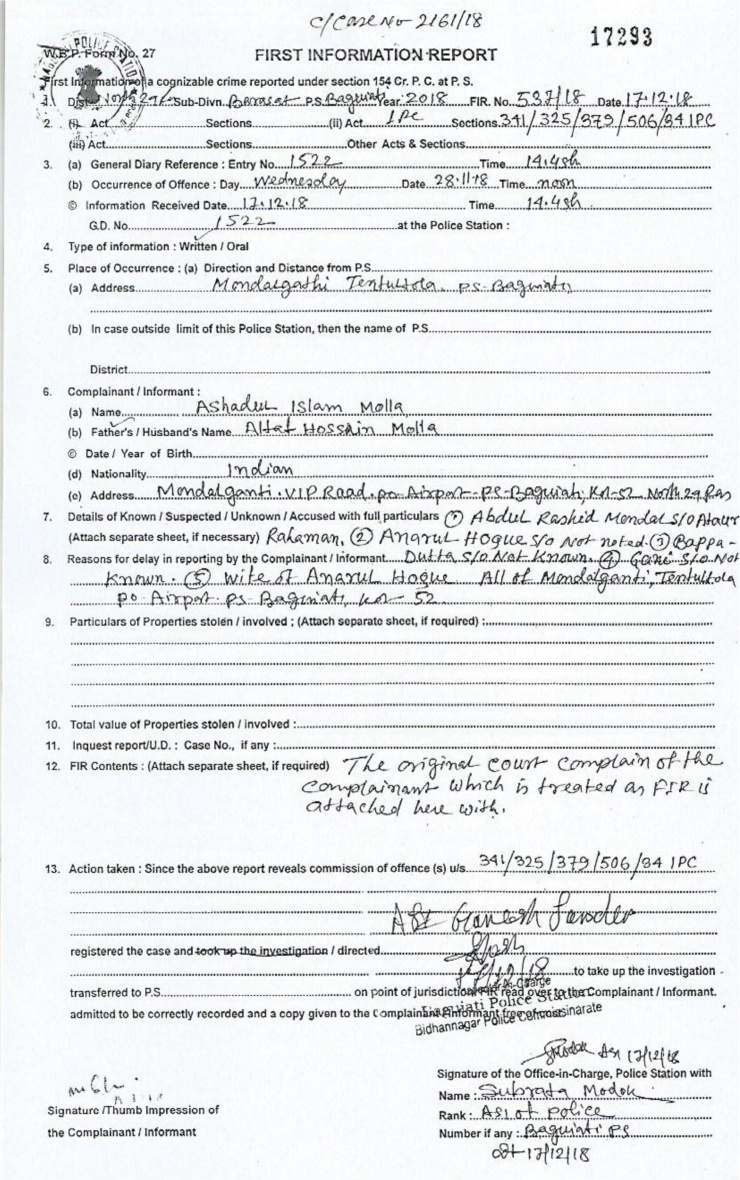 C/Case No 2161/18
17293
W.B.P. Form No. 27
FIRST INFORMATION REPORT
First Information of a cognizable crime reported under section 154 Cr. P. C. at P. S.
1. Dist. Sub-Divn. Barasat P.S. Baguiati Year. 2018 FIR. No. 537/18 Date 17.12.18
2. (i) Act Sections (ii) Act IPC Sections. 341/325/379/506/34 IPC
(iii) Act Sections Other Acts & Sections
3. (a) General Diary Reference : Entry No. 1522 Time 14.45h
(b) Occurrence of Offence : Day Wednesday Date 28.11.18 Time noon
© Information Received Date 17.12.18 Time 14.45h
G.D. No. 1522 at the Police Station :
4. Type of information : Written / Oral
5. Place of Occurrence : (a) Direction and Distance from P.S.
(a) Address Mondalgathi Tentultola. PS- Baguiati
(b) In case outside limit of this Police Station, then the name of P.S.
District
6. Complainant / Informant :
(a) Name Ashadul Islam Molla
(b) Father's / Husband's Name Altaf Hossain Molla
© Date / Year of Birth
(d) Nationality Indian
(e) Address Mondalganti. VIP Road. po- Airport- PS- Baguiati, Kol-52 North 24 Pgs
7. Details of Known / Suspected / Unknown / Accused with full particulars (1) Abdul Rashid Mondal S/o Ataur
(Attach separate sheet, if necessary) Rahaman. (2) Anarul Hogue S/o Not noted. (3) Bappa-
8. Reasons for delay in reporting by the Complainant / Informant Dutta S/o Not Known. (4) S/o Not
Known. (5) wife of Anarul Hogue All of Mondalganti, Tentultola
po- Airport. ps. Baguiati, Kol- 52.
9. Particulars of Properties stolen / involved ; (Attach separate sheet, if required) :
10. Total value of Properties stolen / involved :
11. Inquest report/U.D. : Case No., if any :
12. FIR Contents : (Attach separate sheet, if required) The original court complain of the
complainant which is treated as FIR is
attached here with.
13. Action taken : Since the above report reveals commission of offence (s) u/s. 341/325/379/506/34 IPC
ASI Ganesh
registered the case and took up the investigation / directed
to take up the investigation
transferred to P.S. on point of jurisdiction FIR read over to the Complainant / Informant.
admitted to be correctly recorded and a copy given to the Complainant/Informant free of cost
Baguiati Police Station
Bidhannagar Police Commissinarate
ASI 17/12/18
Signature of the Office-in-Charge, Police Station with
Name : Subrata Modok
Signature /Thumb Impression of
Rank : ASI of Police
the Complainant / Informant
Number if any : Baguiati PS
dt-17/12/18